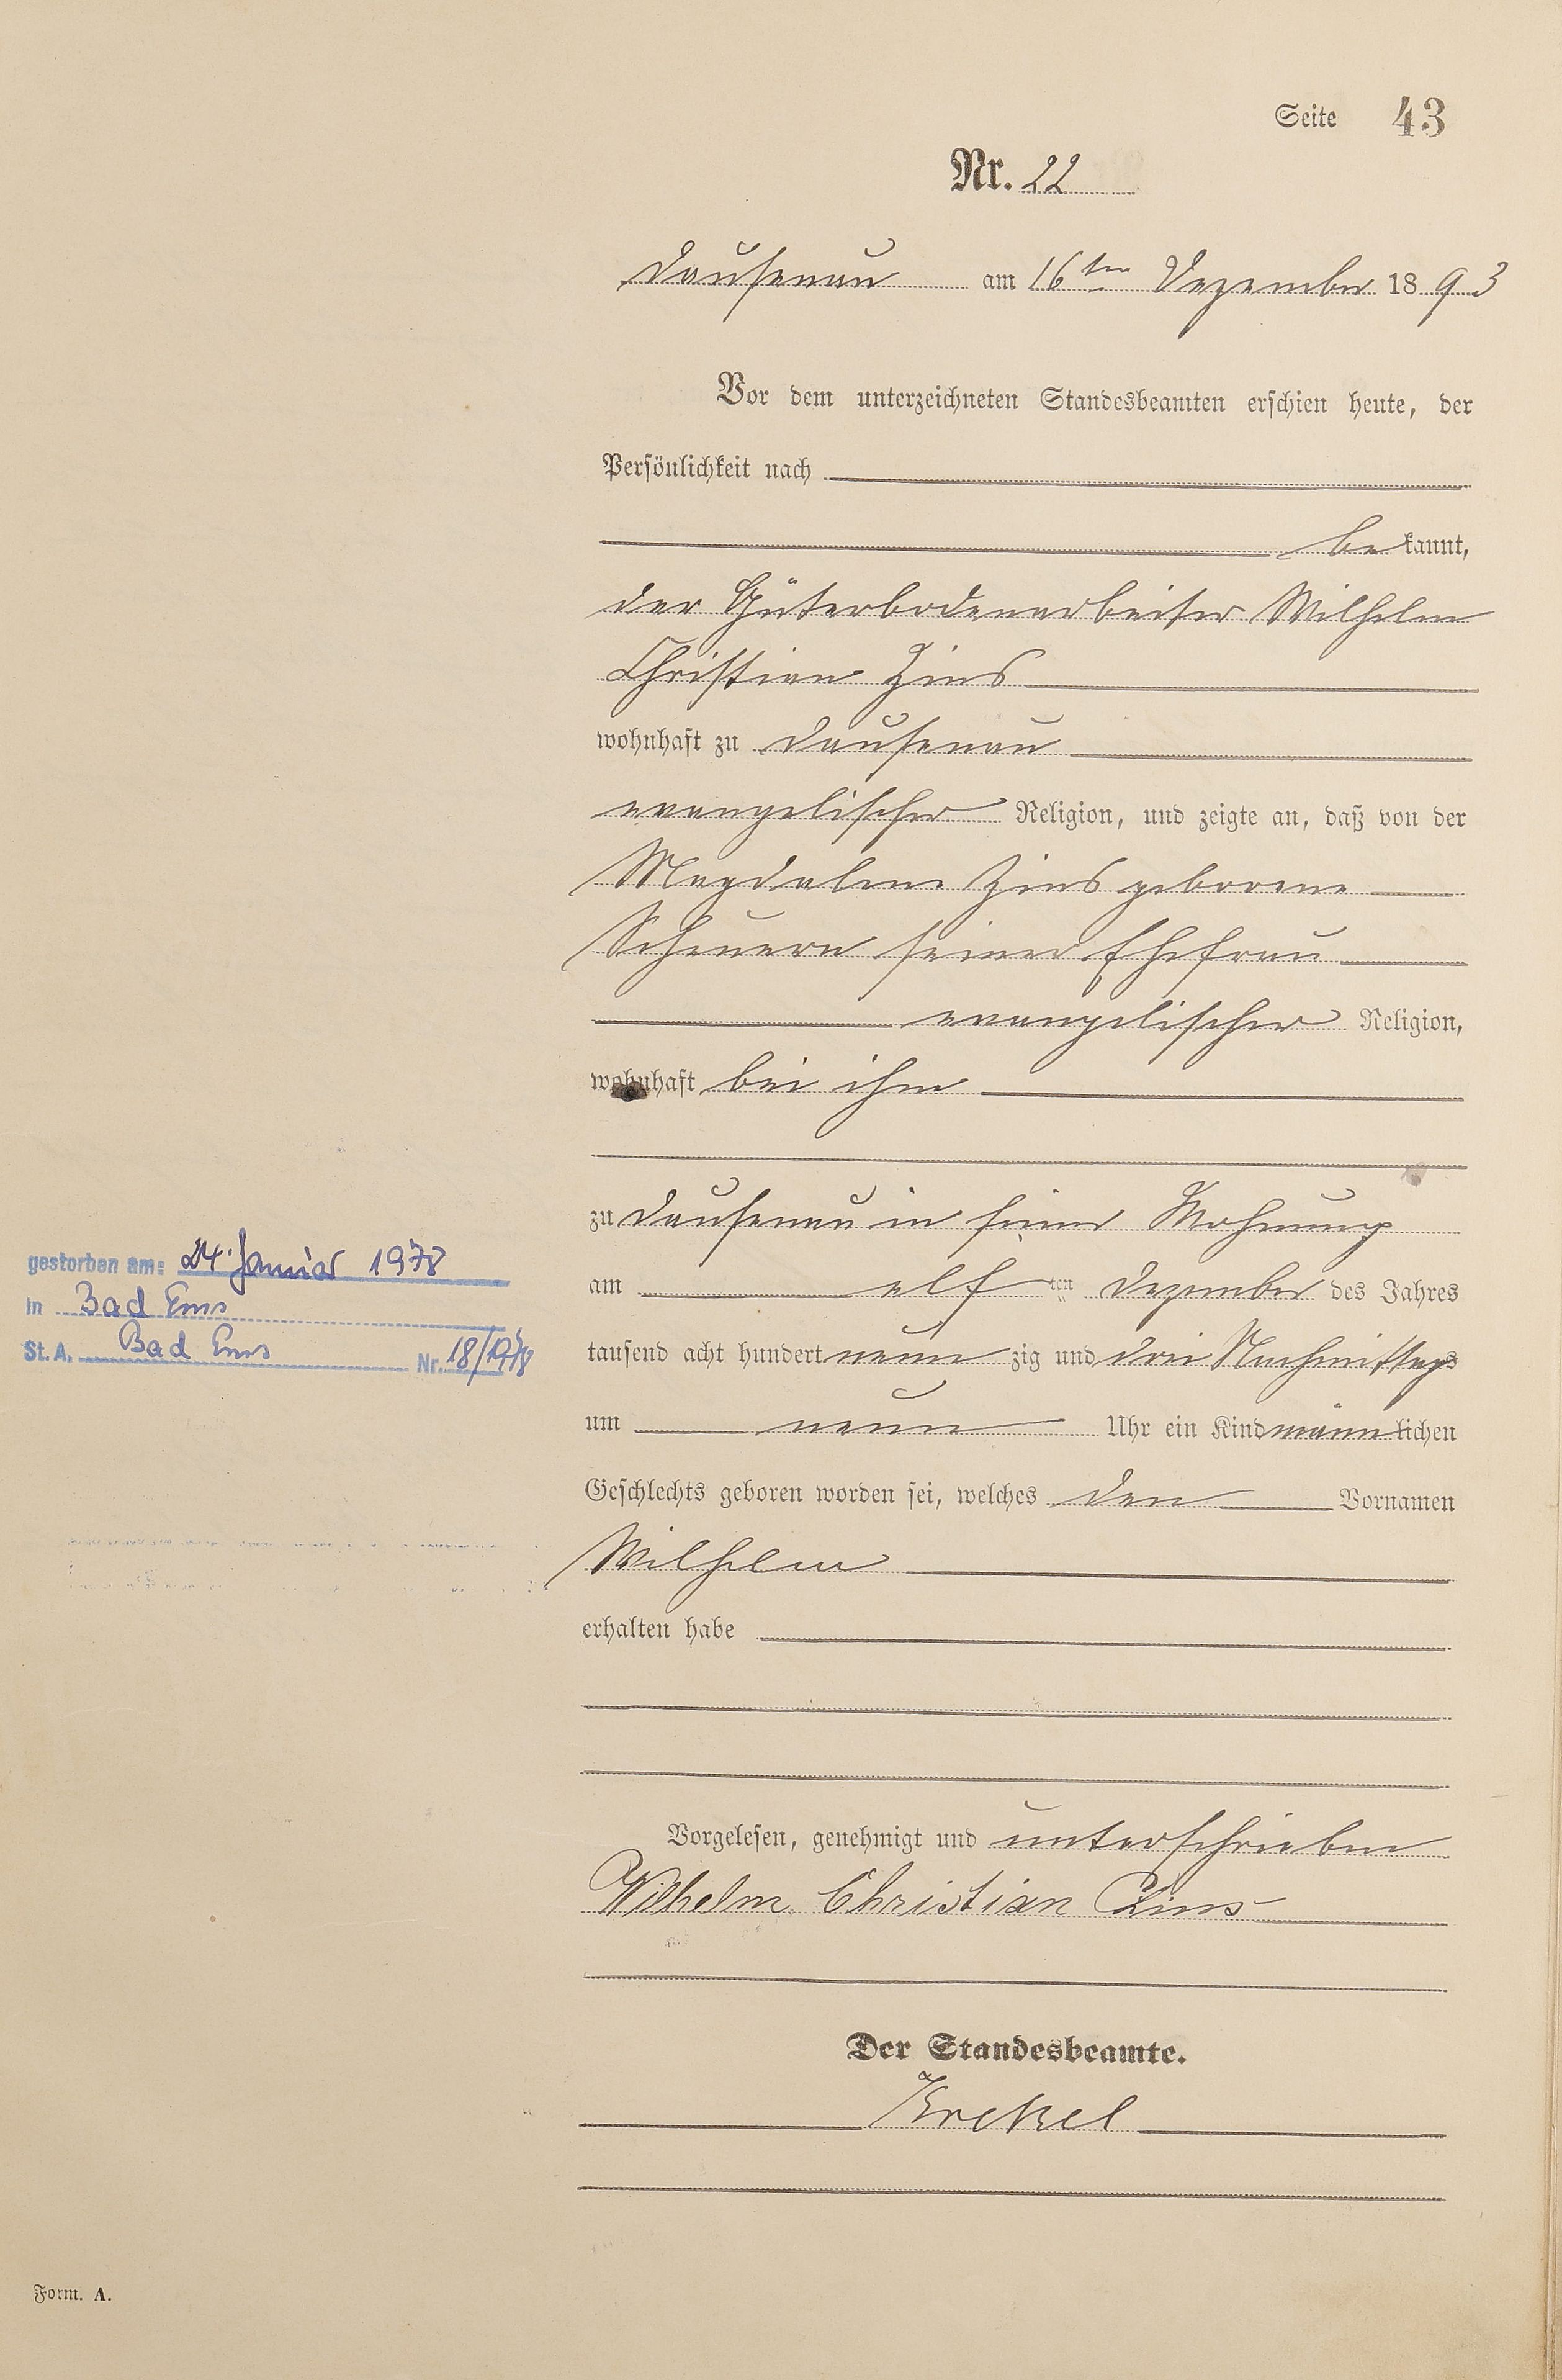 Seite 43
Nr. 22
Dausenau am 16ten Dezember 1893
Vor dem unterzeichneten Standesbeamten erschien heute, der
Persönlichkeit nach
bekannt,
der Güterbodenarbeiter Wilhelm
Christian Zins
wohnhaft zu Dausenau
evangelischer Religion, und zeigte an, daß von der
Magdalene Zins geborene
Scheuern seiner Ehefrau
evangelischer Religion,
wohnhaft bei ihm
zu Dausenau in seiner Wohnung
gestorben am: 24. Januar 1978
in Bad Ems
St. A. Bad Ems Nr. 18/1978
am elf ten Dezember des Jahres
tausend acht hundert neun zig und drei Nachmittags
um neun Uhr ein Kind männlichen
Geschlechts geboren worden sei, welches den Vornamen
Wilhelm
erhalten habe
Vorgelesen, genehmigt und unterschrieben
Wilhelm Christian Zins
Der Standesbeamte.
Krekel
Form. A.